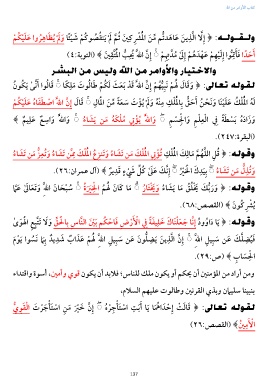 كتاب الأوامر من الله
ولقوله: ﴿ إِلَّا الَّذِينَ عَاهَدتُّم مِّنَ الْمُشْرِكِينَ ثُمَّ لَمْ يَنقُصُوكُمْ شَيْئًا وَلَمْ يُظَاهِرُوا عَلَيْكُمْ
أَحَدًا فَأَتِمُّوا إِلَيْهِمْ عَهْدَهُمْ إِلَىٰ مُدَّتِهِمْ ۚ إِنَّ اللَّهَ يُحِبُّ الْمُتَّقِينَ ﴾ (التوبة:٤)
والاختيار والأوامر من الله وليس من البشر
لقوله تعالى: ﴿ وَقَالَ لَهُمْ نَبِيُّهُمْ إِنَّ اللَّهَ قَدْ بَعَثَ لَكُمْ طَالُوتَ مَلِكًا ۚ قَالُوا أَنَّىٰ يَكُونُ
لَهُ الْمُلْكُ عَلَيْنَا وَنَحْنُ أَحَقُّ بِالْمُلْكِ مِنْهُ وَلَمْ يُؤْتَ سَعَةً مِّنَ الْمَالِ ۚ قَالَ إِنَّ اللَّهَ اصْطَفَاهُ عَلَيْكُمْ
وَزَادَهُ بَسْطَةً فِي الْعِلْمِ وَالْجِسْمِ ۖ وَاللَّهُ يُؤْتِي مُلْكَهُ مَن يَشَاءُ ۚ وَاللَّهُ وَاسِعٌ عَلِيمٌ ﴾
(البقرة:٢٤٧)
وقوله: ﴿ قُلِ اللَّهُمَّ مَالِكَ الْمُلْكِ تُؤْتِي الْمُلْكَ مَن تَشَاءُ وَتَنزِعُ الْمُلْكَ مِمَّن تَشَاءُ وَتُعِزُّ مَن تَشَاءُ
وَتُذِلُّ مَن تَشَاءُ ۖ بِيَدِكَ الْخَيْرُ ۖ إِنَّكَ عَلَىٰ كُلِّ شَيْءٍ قَدِيرٌ ﴾ (آل عمران:٢٦).
وقوله: ﴿ وَرَبُّكَ يَخْلُقُ مَا يَشَاءُ وَيَخْتَارُ ۗ مَا كَانَ لَهُمُ الْخِيَرَةُ ۚ سُبْحَانَ اللَّهِ وَتَعَالَىٰ عَمَّا
يُشْرِكُونَ ﴾ (القصص:٦٨).
وقوله: ﴿ يَا دَاوُودُ إِنَّا جَعَلْنَاكَ خَلِيفَةً فِي الْأَرْضِ فَاحْكُم بَيْنَ النَّاسِ بِالْحَقِّ وَلَا تَتَّبِعِ الْهَوَىٰ
فَيُضِلَّكَ عَن سَبِيلِ اللَّهِ ۚ إِنَّ الَّذِينَ يَضِلُّونَ عَن سَبِيلِ اللَّهِ لَهُمْ عَذَابٌ شَدِيدٌ بِمَا نَسُوا يَوْمَ
الْحِسَابِ ﴾ (ص:٢٩).
ومن أراد من المؤمنين أن يحكم أو يكون ملك للناس؛ فلابد أن يكون قوي وأمين، أسوة واقتداء
بنبينا سليمان وبذي القرنين وطالوت عليهم السلام،
لقوله تعالى: ﴿ قَالَتْ إِحْدَاهُمَا يَا أَبَتِ اسْتَأْجِرْهُ ۖ إِنَّ خَيْرَ مَنِ اسْتَأْجَرْتَ الْقَوِيُّ
الْأَمِينُ ﴾ (القصص:٢٦)
137